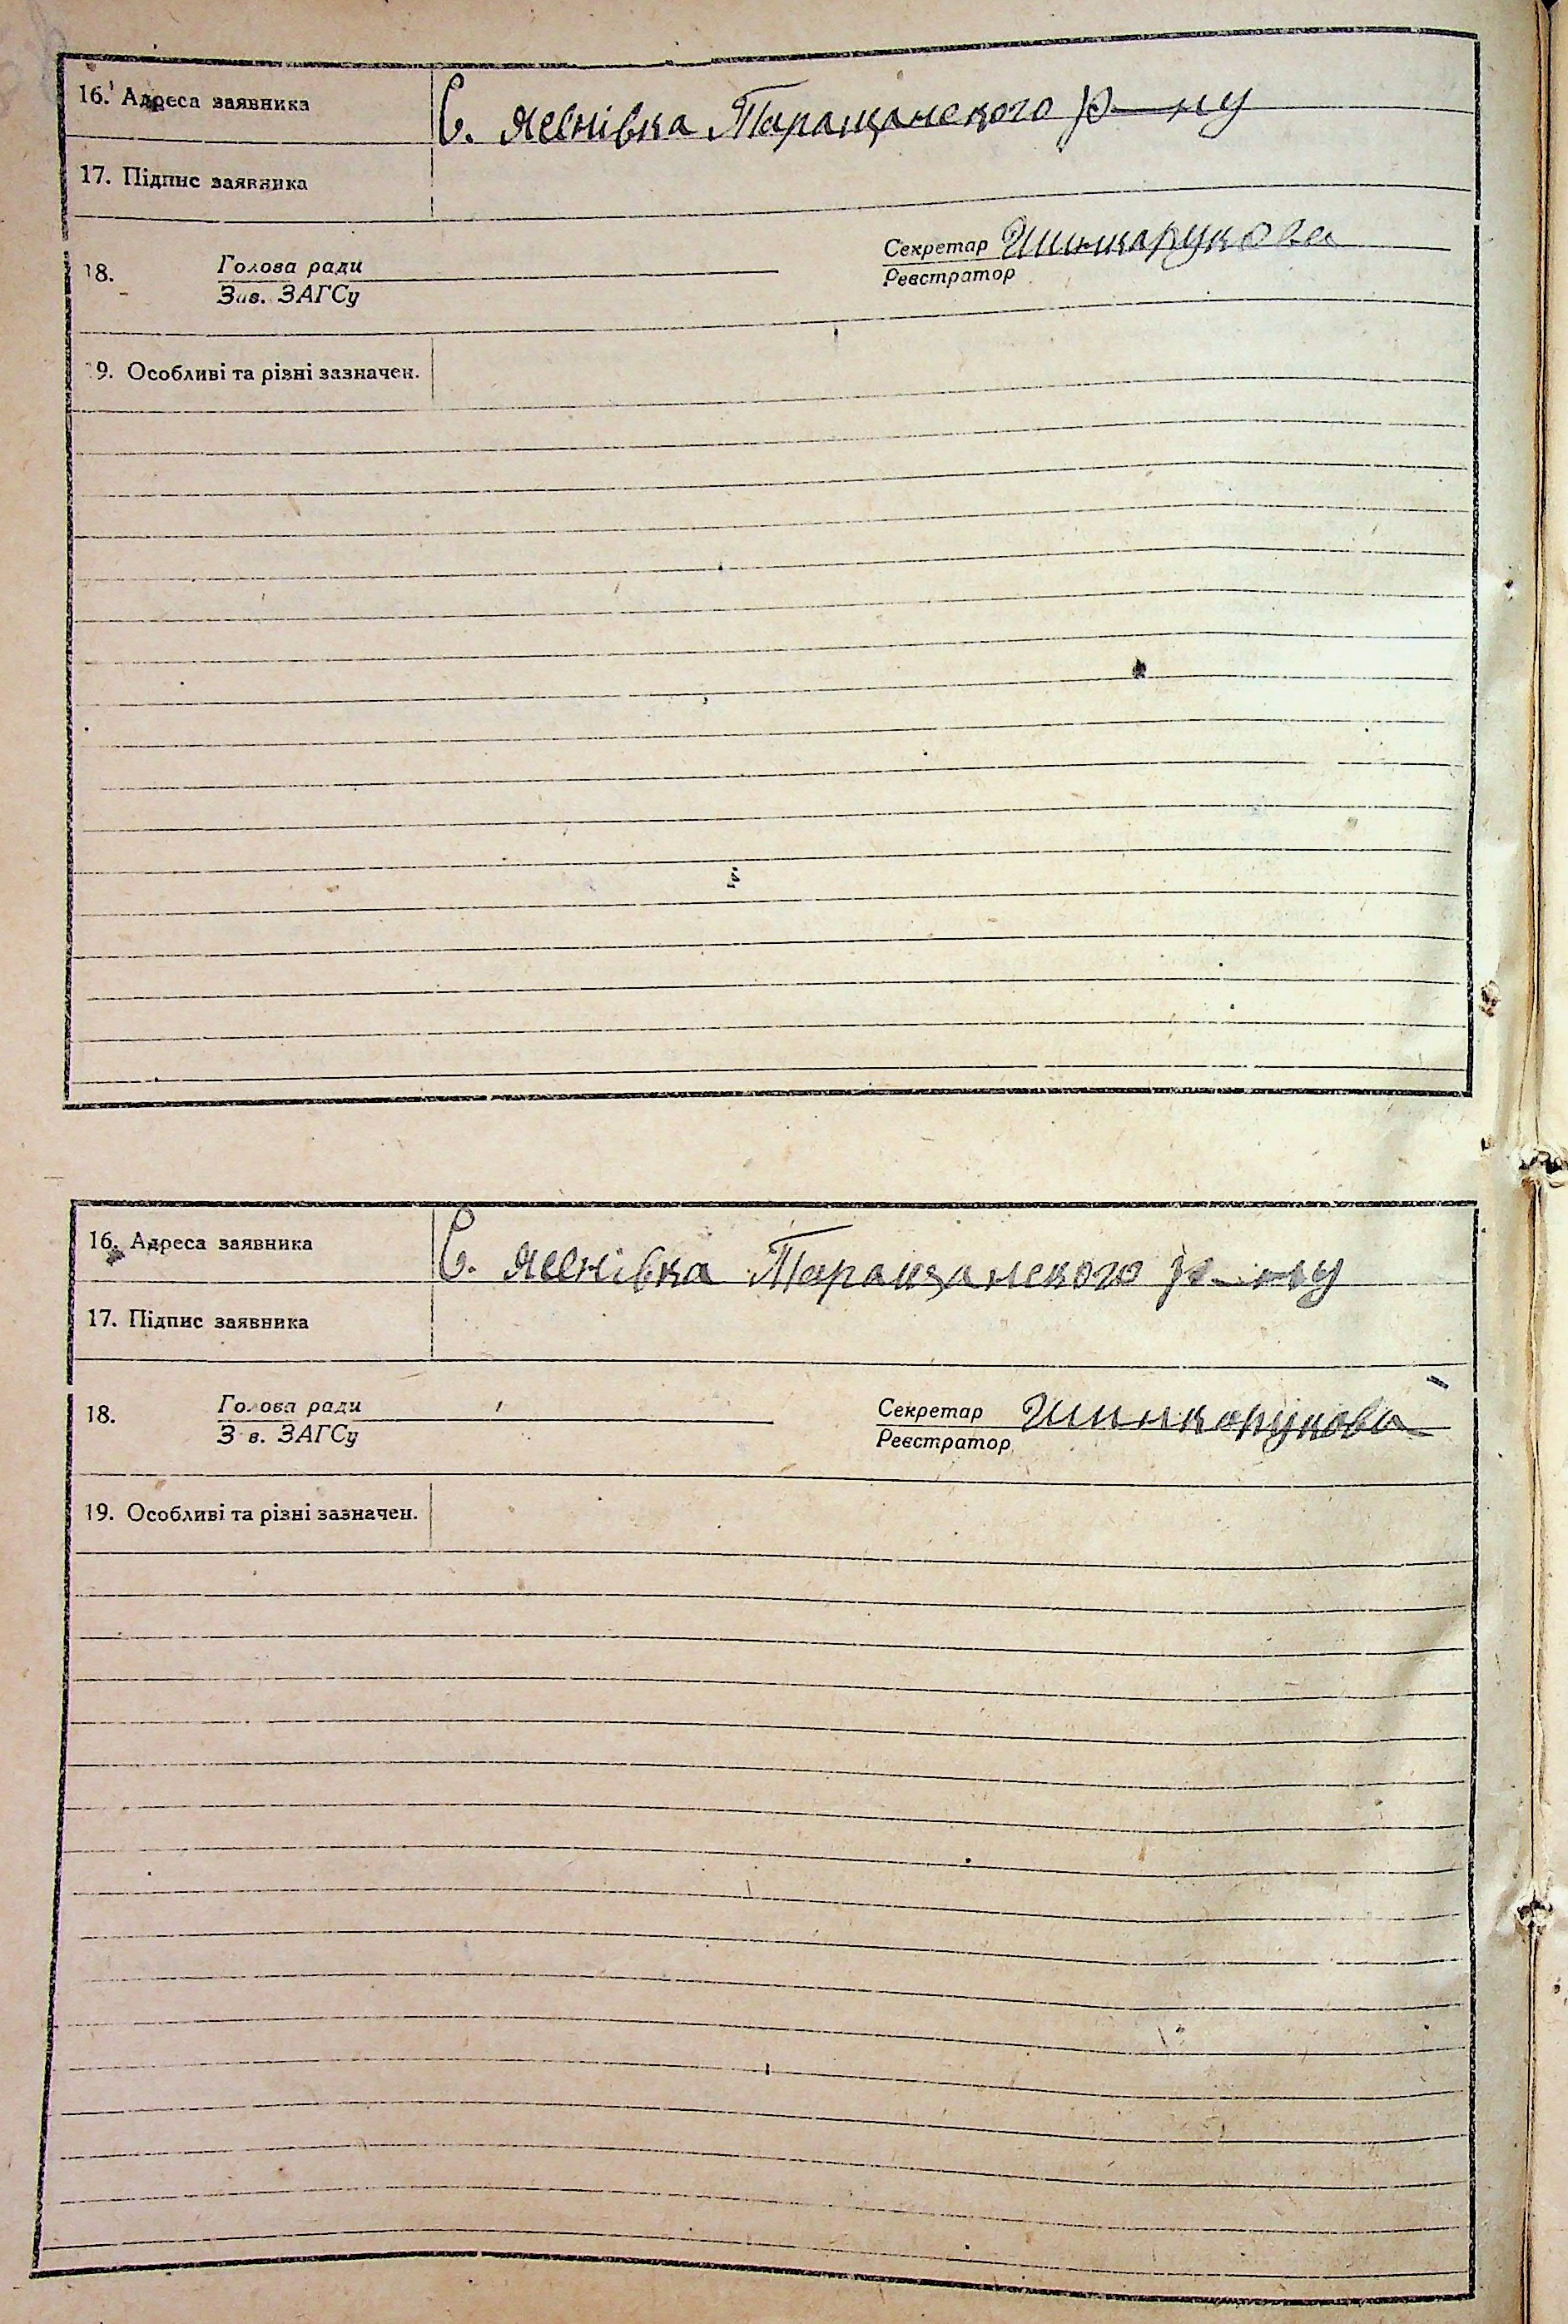 16. Адреса заявника С. Яснівка Таращанского р-ну
17. Підпис заявника
18. Голова ради Секретар Шинкарукова
Зав. ЗАГСу Реєстратор
19. Особливі та різні зазначен.
16. Адреса заявника С. Яснівка Таращанского р-ну
17. Підпис заявника
18. Голова ради Секретар Шинкарукова
Зав. ЗАГСу Реєстратор
19. Особливі та різні зазначен.